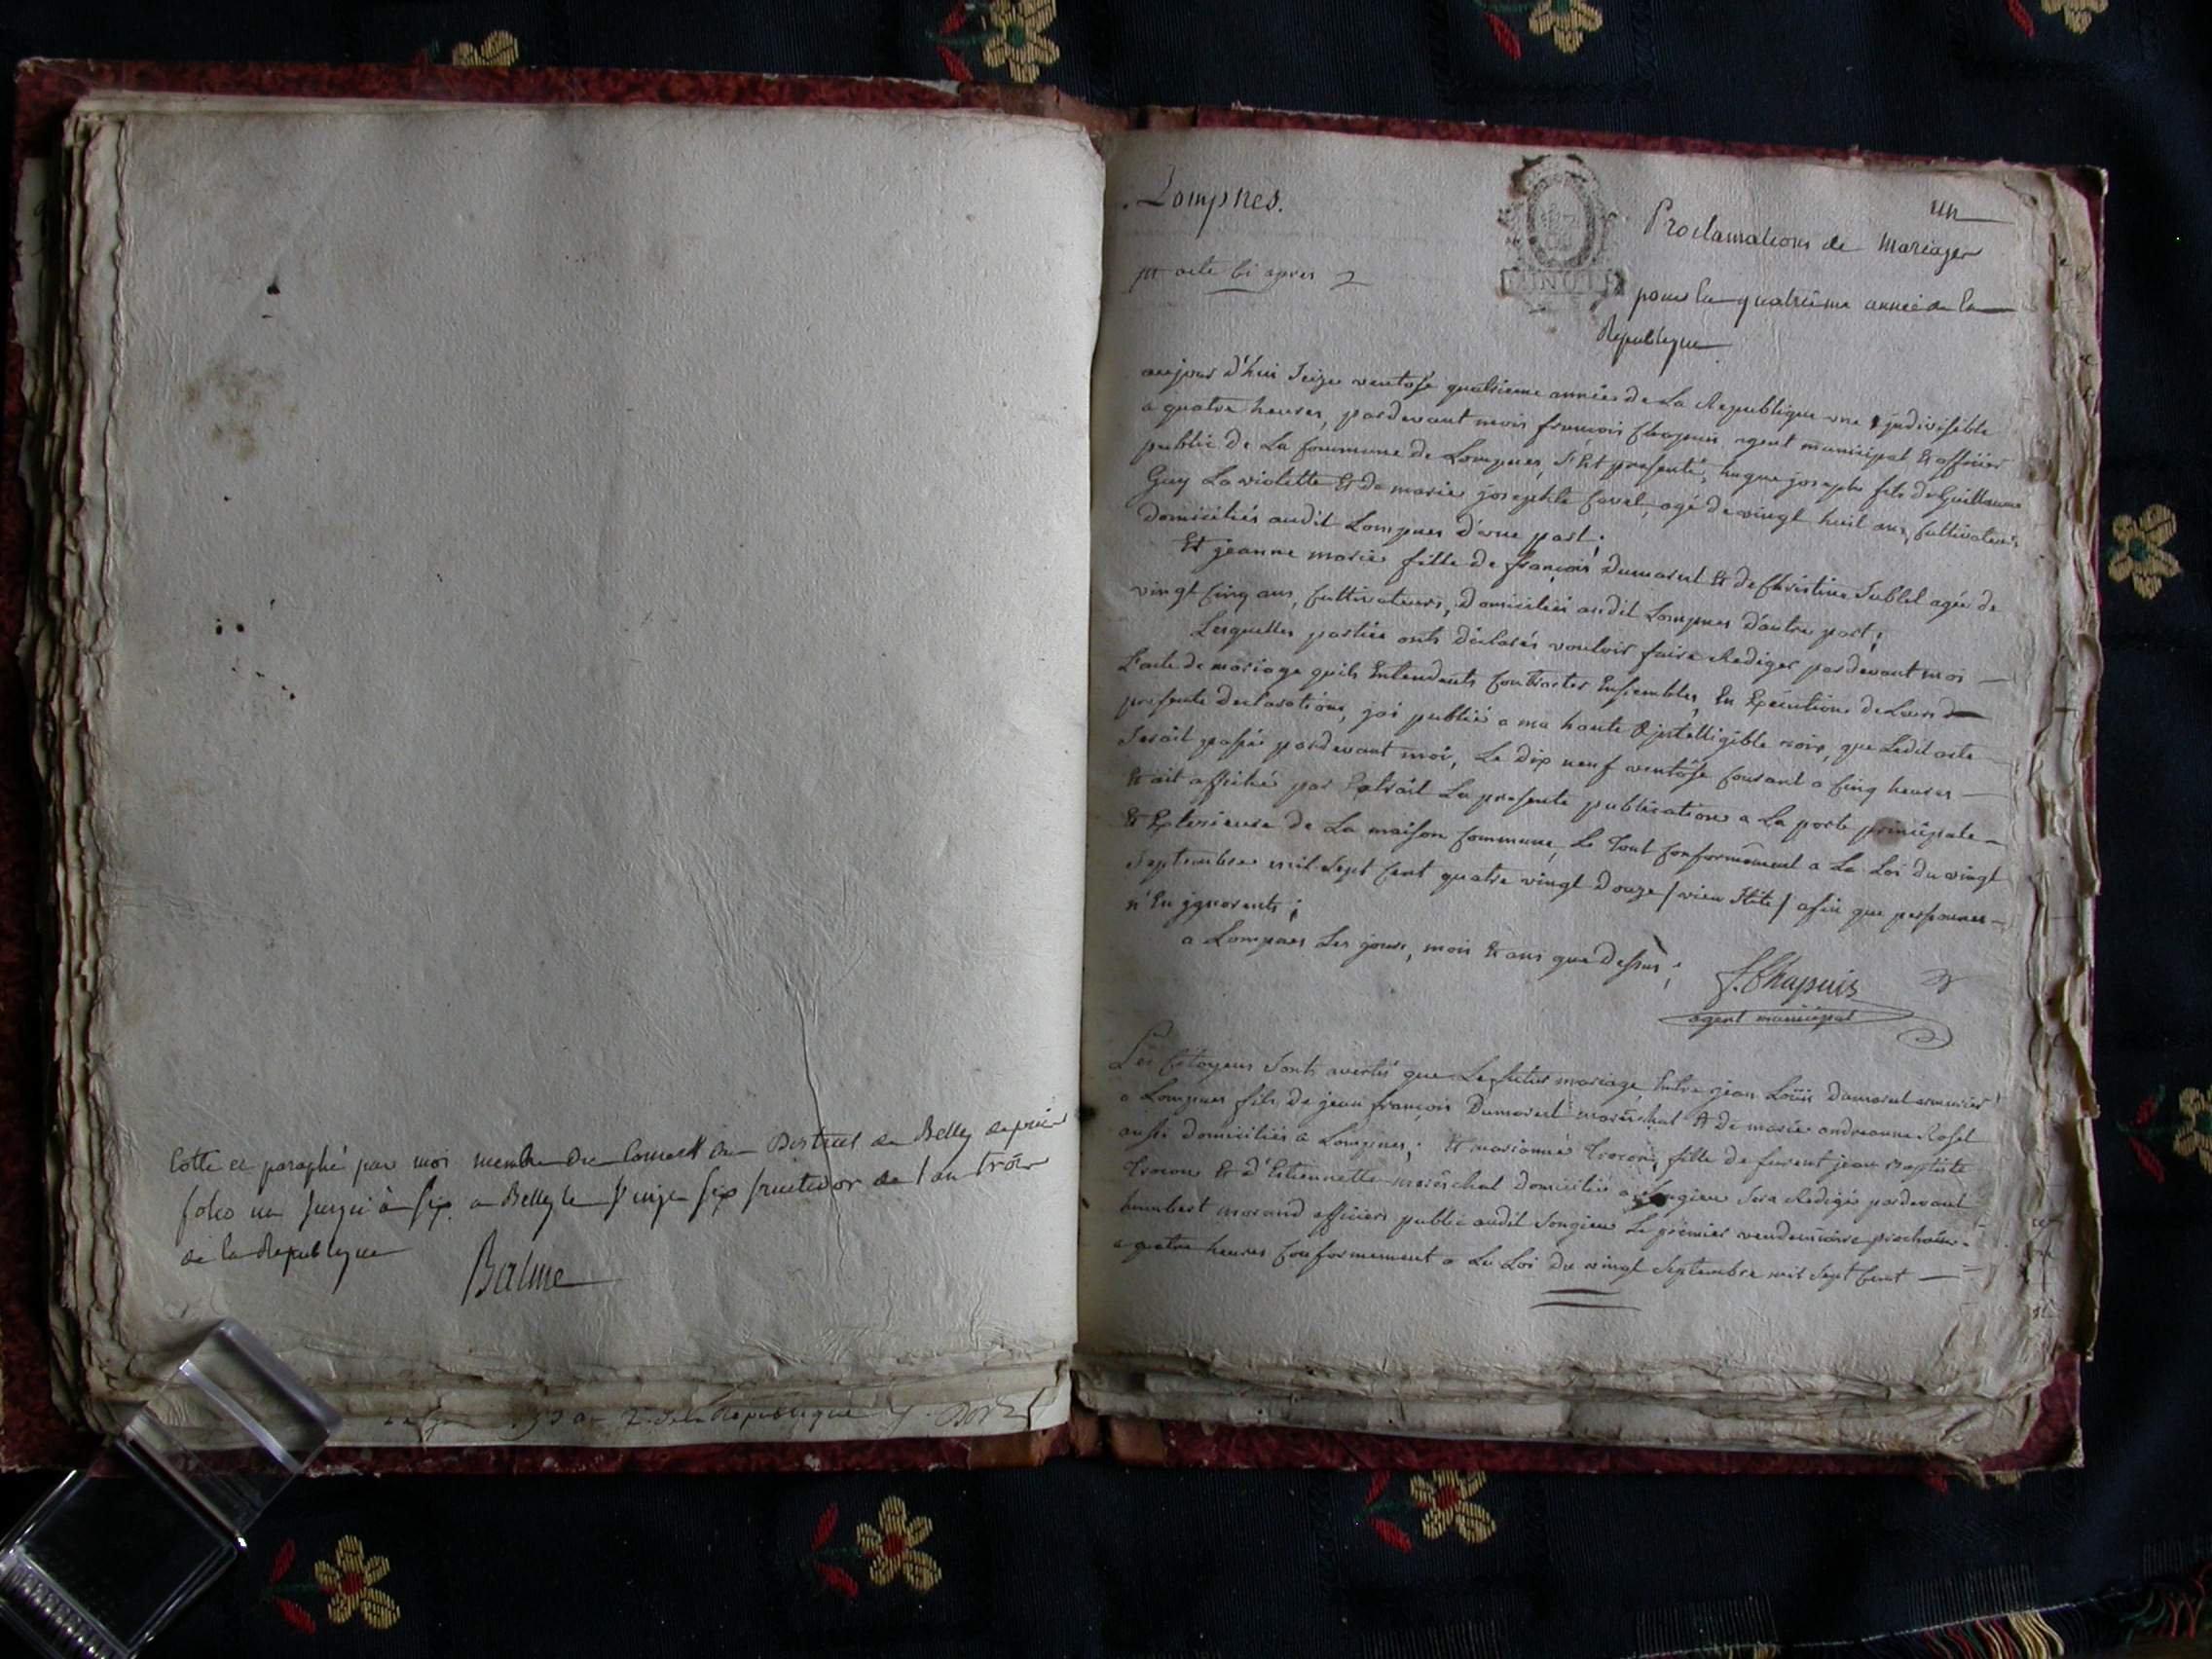 Cotté et paraphé par moi membre du Conseil du District de Belley depuis
folio un jusqu'à six, a Belley le vingt six fructidor de l'an trois
de la Republique
Balme
de la Republique
Lompnes.
un
Proclamations de mariages
pour la quatrieme année de la
Republique
acte ci apres 2
aujour d'hui Seize ventose quatrieme années de La Republique une & indivisible
a quatre heures, pardevant mois françois Chapuis agent municipal Et officier
public de La Commune de Lompnes, S'Est presenté, hugue josephe fils de Guillaume
Guy La violette Et de marie josephte Carrel agé de vingt huit ans, Cultivateurs
domiciliés audit Lompnes d'une part;
Et jeanne marie fille de françois Dumarest Et de Christine Sublet agée de
vingt Cinq ans, Cultivateurs, Domiciliés audit Lompnes d'autre part;
Lesquelles parties onts déclarés vouloir faire Rediger pardevant moi
L'acte de mariage quils Entendents Contracter Ensembles, En Execution de Leurs
presente declarations, jai publié a ma haute & jntelligible voix, que Ledit acte
Serait passé pardevant moi, Le dix neuf ventose Courant a Cinq heures
Et ait affiché par Extrait La presente publication a La porte principale
Et Exterieure de La maison Commune, Le Tout Conformément a La Loi du vingt
Septembre mil Sept Cent quatre vingt Douze / vieu Stile / afin que personnes
n'En jgnorents;
a Lompnes Les jours, mois Et ans que Dessus;
f. Chapuis
agent municipal
Les Citoyens Sonts avertis que Le futur mariage Entre jean Loüis Dumarest
a Lompnes fils de jean françois Dumarest maréchal Et de marie andreanne Rosset
aussi domiciliés à Lompnes; Et marianne Trocon, fille de feu jean Baptiste
Trocon Et d'Estiennette maréchal domicilié a Songieu Sera Redigé pardevant
humbert morand officier public audit Songieu Le premier vendemiaire prochain
a quatre heures Conformement a La Loi du vingt Septembre mil Sept Cent